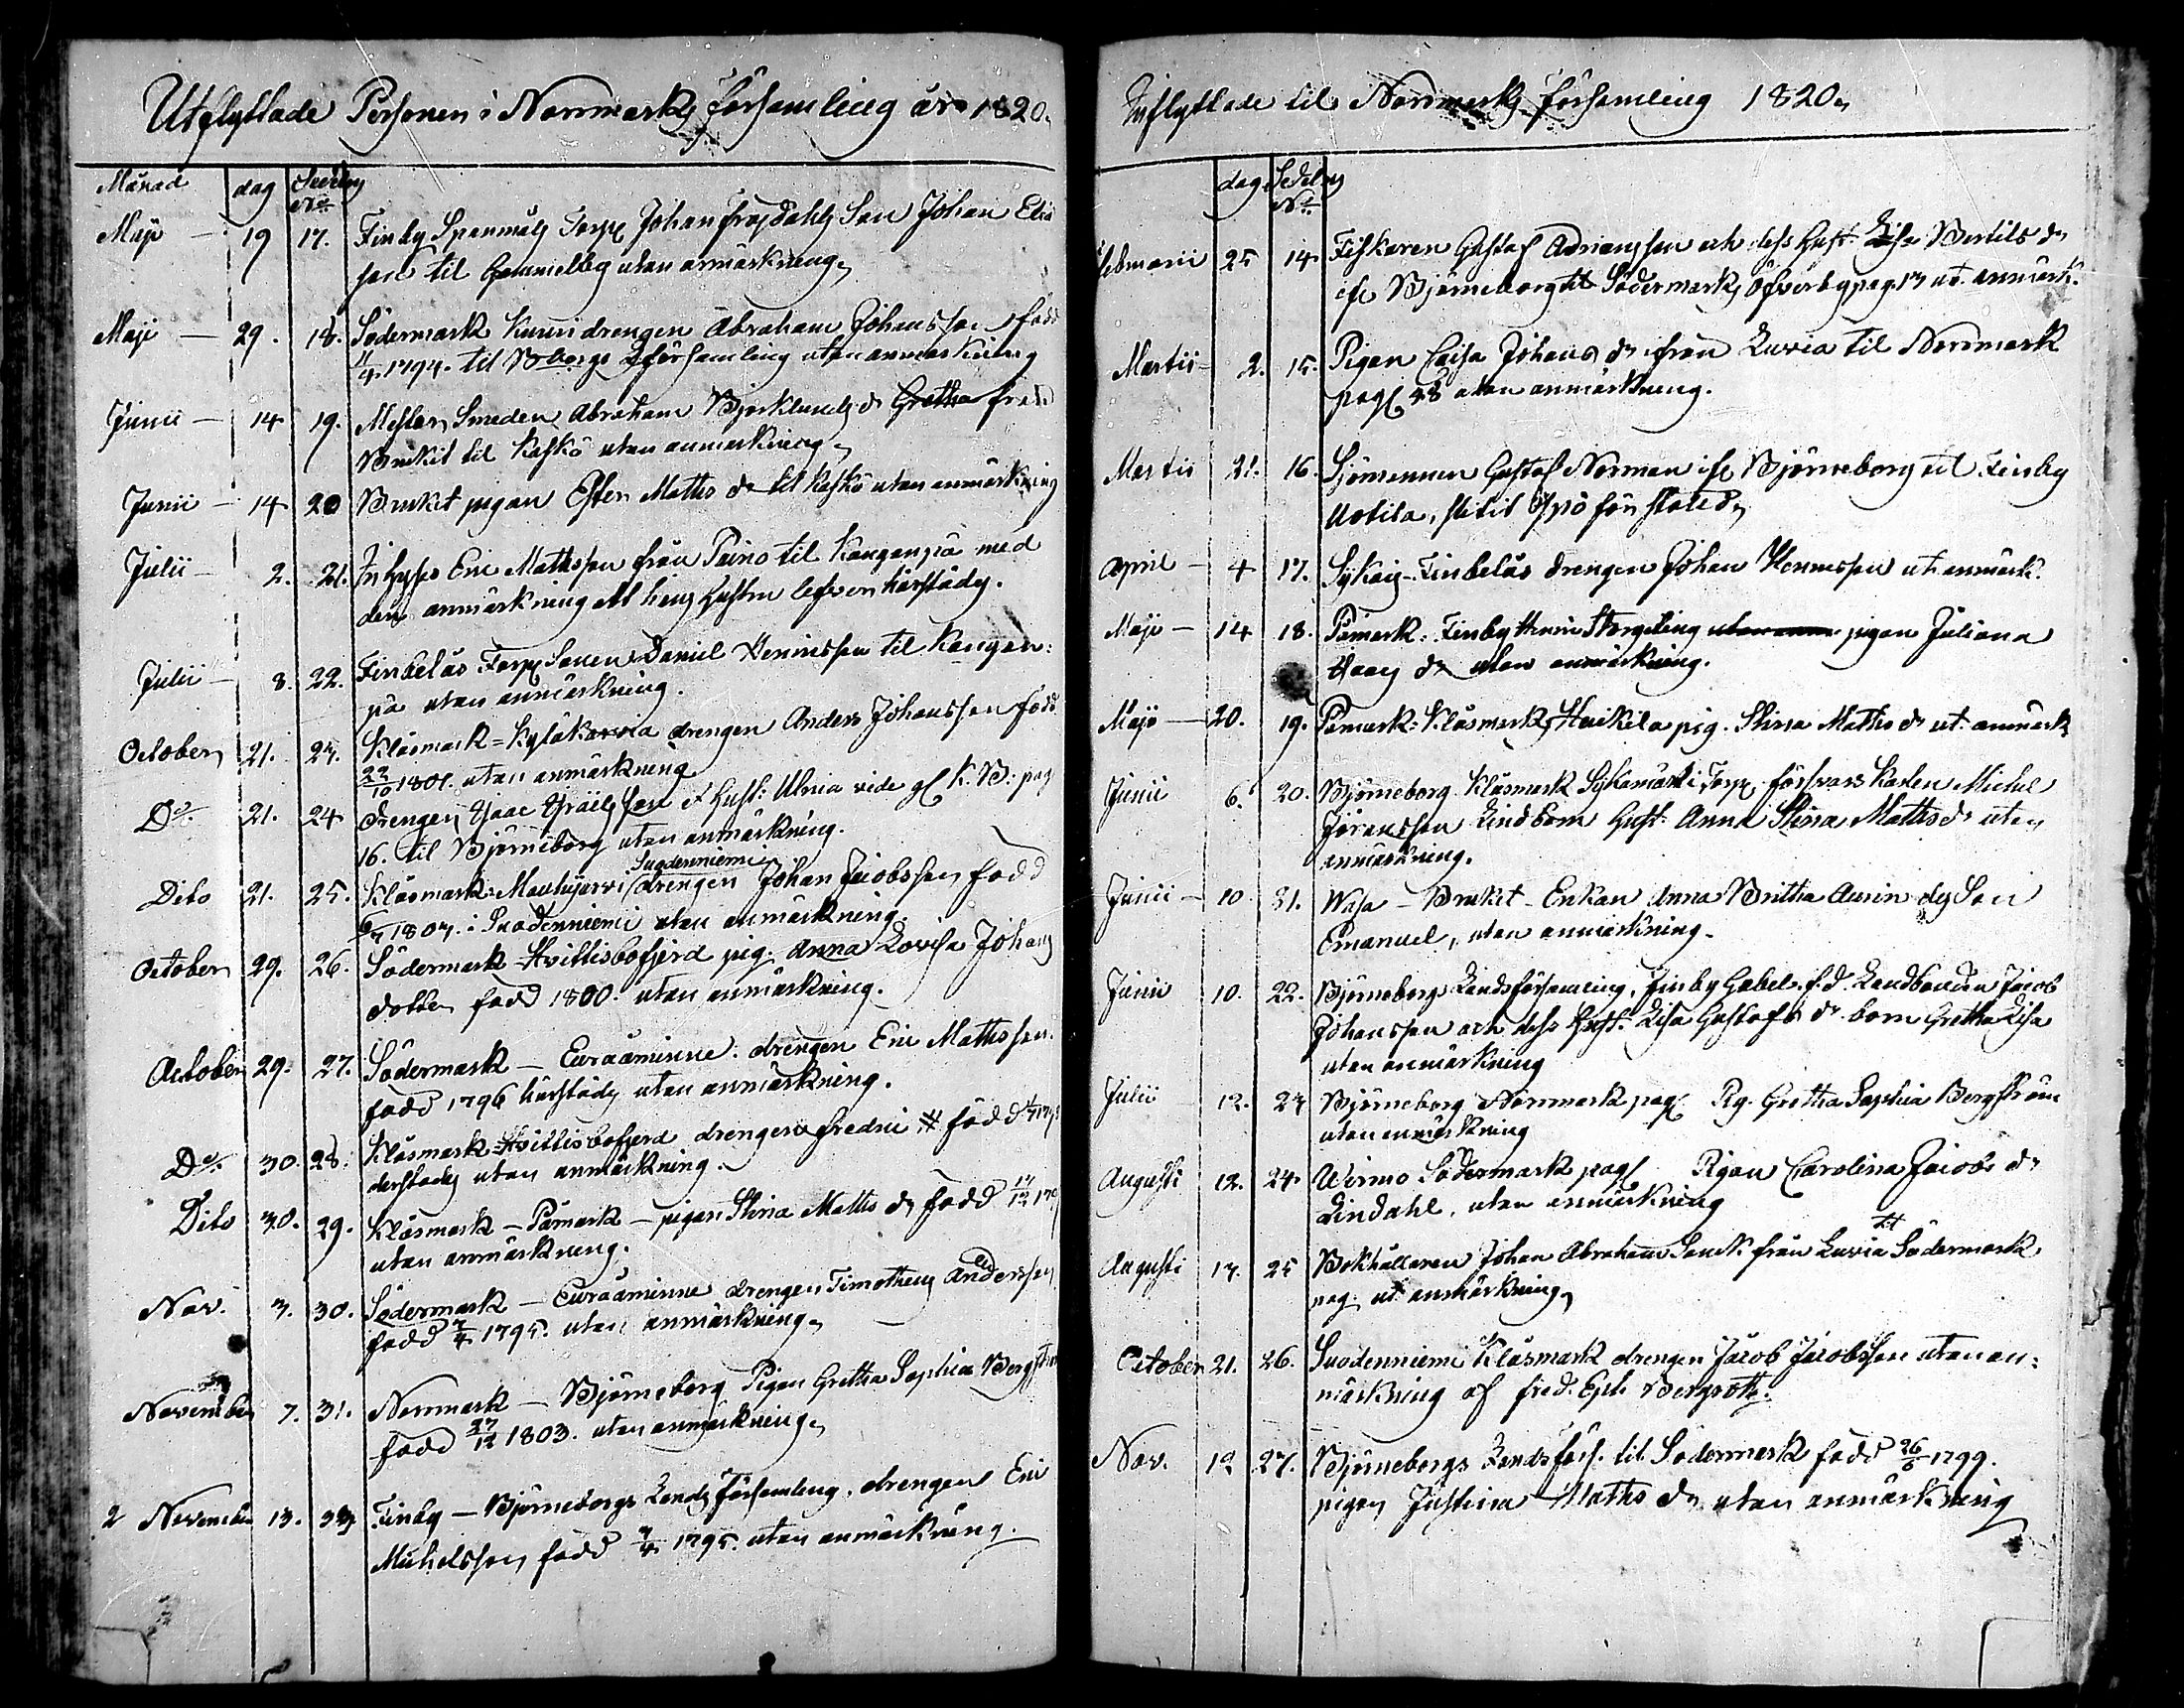 Utflyttade Personer i Norrmarks församling år 1820.
Månad dag Sedelns No
Maji — 19 17. Finby Spanmåls Torp Johan Frosdahls Son Johan Elia
son til Gammelby utan anmärkning,
Maji — 29. 18. Södermark Kuusi drengen Abraham Johansson född
1/4 1794. til Bborgs församling utan anmärkning
Junii — 14 19. Mäster Smeden Abraham Björklunds dr Gretha från
Bruket til Kaskö utan anmärkning,
Junii — 14 20 Bruket pigan Ester Matts dr til Kaskö utan anmärkning
Julii — 2. 21. Inhyses Eric Mattsson från Paino til Kanganpä med
den anmärkning att hans hustru lefver härstädes.
Julii — 8. 22. Finbelås Torp Sonen Daniel Henricsson til Kangan:
pä utan anmärkning.
October 21. 23. Klåsmark = Kyläkarvia drengen Anders Johansson född
22/10 1801. utan anmärkning
Do 21. 24 drengen Isaac Israelsson & hust: Ulrica vide gl K.B: pag
16. til Björneborg utan anmärkning.
Suodenniemi
Dito 21. 25. Klåsmark: Mouhijärvi drengen Johan Jacobsson född
6/7 1807. i Suodenniemi utan anmärkning.
October 29. 26. Södermark Hvittisbofjerd pig. Anna Lovisa Johans
dotter född 1800. utan anmärkning.
October 29. 27. Södermark — Euraåminne. drengen Eric Mattsson.
född 1796 härstädes utan anmärkning.
Do 30. 28. Klåsmark Hvittisbofjerd drengen Fredric # född
derstädes utan anmärkning.
Dito 30. 29. Klåsmark — Påmark — pigan Stina Matts dr född 17/12
utan anmärkning.
Nov. 3. 30. Södermark — Euraåminne drengen Timotheus Andersson
född 7/4 1795. utan anmärkning,
November 7. 31. Norrmark — Björneborg Pigan Gretha Sophia Bergström
född 27/12 1803. utan anmärkning,
2 November 13. 32 Finby — Björneborgs Lands församling. drengen Eric
Michelsson född 7/4 1795. utan anmärkning.
Inflyttade til Norrmarks församling 1820,
dag Sedelns No
Februarii 25 14 Fiskaren Gustaf Adriansson och dess Hust. Lisa Bertils dr
ifr Björneborg til Södermark Öfverby pag. 17 ut. anmärk.
Martii — 2. 15. Pigan Caisa Johans dr ifrån Luvia til Norrmark
pag 48 utan anmärkning.
Martii 21. 16. Sjömannen Gustaf Norman ifr Björneborg til Finby
Uotila,
April — 4 17. Sykaig - Finbelås drengen Johan Henricsson ut. anmärk.
Maji — 14 18. Påmark. Finby Storgeting utan anm pigan Juliana
Haag dr utan anmärkning.
Maji — 20. 19. Påmark: Klåsmark, Heikilä pig. Stina Matts dr ut. anmärk
Junii 6. 20. Björneborg Klåsmark Torp försvars Karlen Michel
Göransson Lindbom Hust. Anna Stina Matts dr utan
anmärkning.
Junii — 10 21. Wasa — Bruket - Enkan Anna Britha Aurin des Son
Emanuel, utan anmärkning.
Junii 10. 22. Björneborgs Landsförsamling, Finby Gabels. f.d. Landbonden Jacob
Johansson och dess Hust. Lisa Gustafs dr barn Gretha Lisa
utan anmärkning
Julii 12. 23 Björneborg Norrmark pag. Pig. Gretha Sophia Bergström
utan anmärkning
Augusti 12. 24 Wirmo Södermark pag. Pigan Carolina Jacobs dr
Lindahl, utan anmärkning
til
Augusti 17. 25 Bokhållaren Johan Abraham från Luvia Södermark
pag. ut anmärkning,
October 21. 26. Suodenniemi Klåsmark drengen Jacob Jacobsson utan an:
märkning af fred. Eph. Bergroth.
Nov. 12 27. Björneborgs Lands förs. til Södermark född 26/6 1799.
pigan Justina Matts dr utan anmärkning